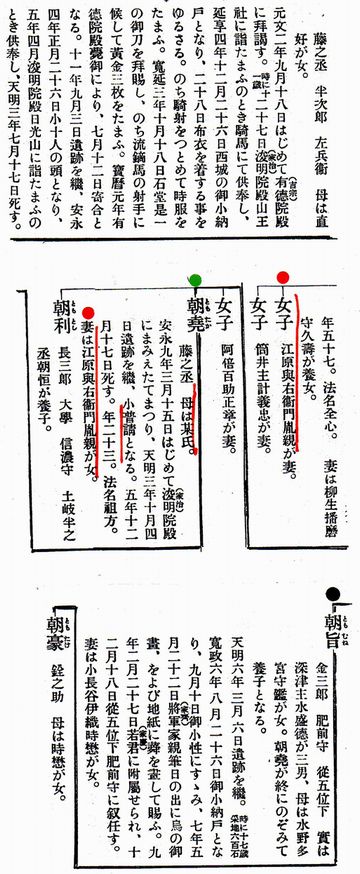 藤之丞 半次郎 左兵衞 母は直
好が女。
元文二年九月十八日はじめて有德院殿(吉宗)
に拜謁す。時に十一歲 二十七日浚明院殿(家治)山王
社に詣たまふのとき騎馬にて供奉し、
延享四年十二月二十六日西城の御小納
戶となり、二十八日布衣を着する事を
ゆるさる。のち騎射をつとめて時服を
たまふ。寬延三年十月十八日石堂是一
の御刀を拜賜し、のち流鏑馬の射手に
候して黃金三枚をたまふ。寶曆元年有
德院殿薨御により、七月十二日寄合と
なる。十一年九月三日遺跡を繼、安永
四年正月二十六日小十人の頭となり、
五年四月浚明院殿日光山に詣たまふの
とき供奉し、天明三年七月十七日死す。
年五十七。法名全心。 妻は柳生播磨
守久壽が養女。
女子 江原與右衞門胤親が妻。
女子 筒井主計義忠が妻。
女子 阿倍百助正章が妻。
朝堯
藤之丞 母は某氏。
安永九年三月十五日はじめて浚明院殿(家治)
にまみえたてまつり、天明三年十月四
日遺跡を繼、小普請となる。五年十二
月十七日死す。年二十三。法名祖方。
妻は江原與右衞門胤親が女。
朝利 ともとし 長三郎 大學 信濃守 土岐半之
丞朝恒が養子。
朝旨 ともむね
金三郎 肥前守 從五位下 實は
深津主水盛德が三男、母は水野多
宮守鑑が女。朝堯が終にのぞみて
養子となる。
天明六年三月六日遺跡を繼。時に十七歲 采地六百石
寬政六年八月二十六日御小納戶とな
り、九月十日御小性にすゝみ、七年五
月二十二日將軍家(家齊)親筆日の出に鳥の御
畫、をよび地紙に鷺を畫して賜ふ。九
年二月二十七日若君(家慶)に附屬せられ、十
二月十八日從五位下肥前守に叙任す。
妻は小長谷伊織時懋が女。
朝豪 ともたけ 銓之助 母は時懋が女。